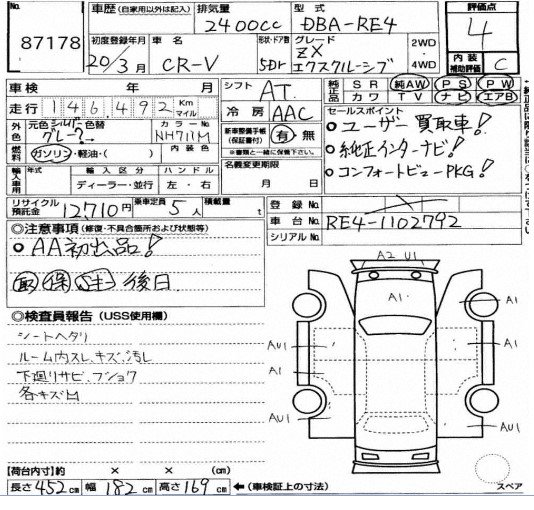 No. 87178
車歴 (自家用以外は記入) 排気量 2400cc 型式 DBA-RE4
初度登録年月 20/3月 車名 CR-V 形状・ドア数 5Dr グレード ZX エクスクルーシブ 2WD・4WD
評価点 4
内装補助評価 C
車検 年 月
走行 146,492 Km マイル
外色 元色 シルバー 色替 グレー? カラーNo. NH711M
燃料 ガソリン・軽油・( ) 内装色
輸入車用 年式 輸入区分 ディーラー・並行 ハンドル 左・右
シフト AT
冷房 AAC
新車整備手帳 (保証書付) 有 無
※書類と一緒に保管して下さい。
名義変更期限 月 日
純正品 SR 純AW PS PW
カワ TV ナビ エアB
セールスポイント
ユーザー買取車!
純正インターナビ!
コンフォートビューPKG!
リサイクル預託金 12,710円 乗車定員 5人 積載量 t
登録No.
車台No. RE4-1102792
シリアルNo.
◎注意事項 (修復・不具合箇所および状態等)
AA初出品!
取 保 後日
◎検査員報告 (USS使用欄)
シートヘタリ
ルーム内スレ、キズ、汚レ
下廻りサビ、フショク
各キズ凹
A2 U1
A1
A1
AU1
A1
AU1
AU1
【荷台内寸】約 × × (cm)
長さ 452cm 幅 182cm 高さ 169cm ←(車検証上の寸法)
スペア